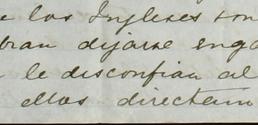 e los Ingleses son
bran dejarse enga
le desconfian al
ellos directam